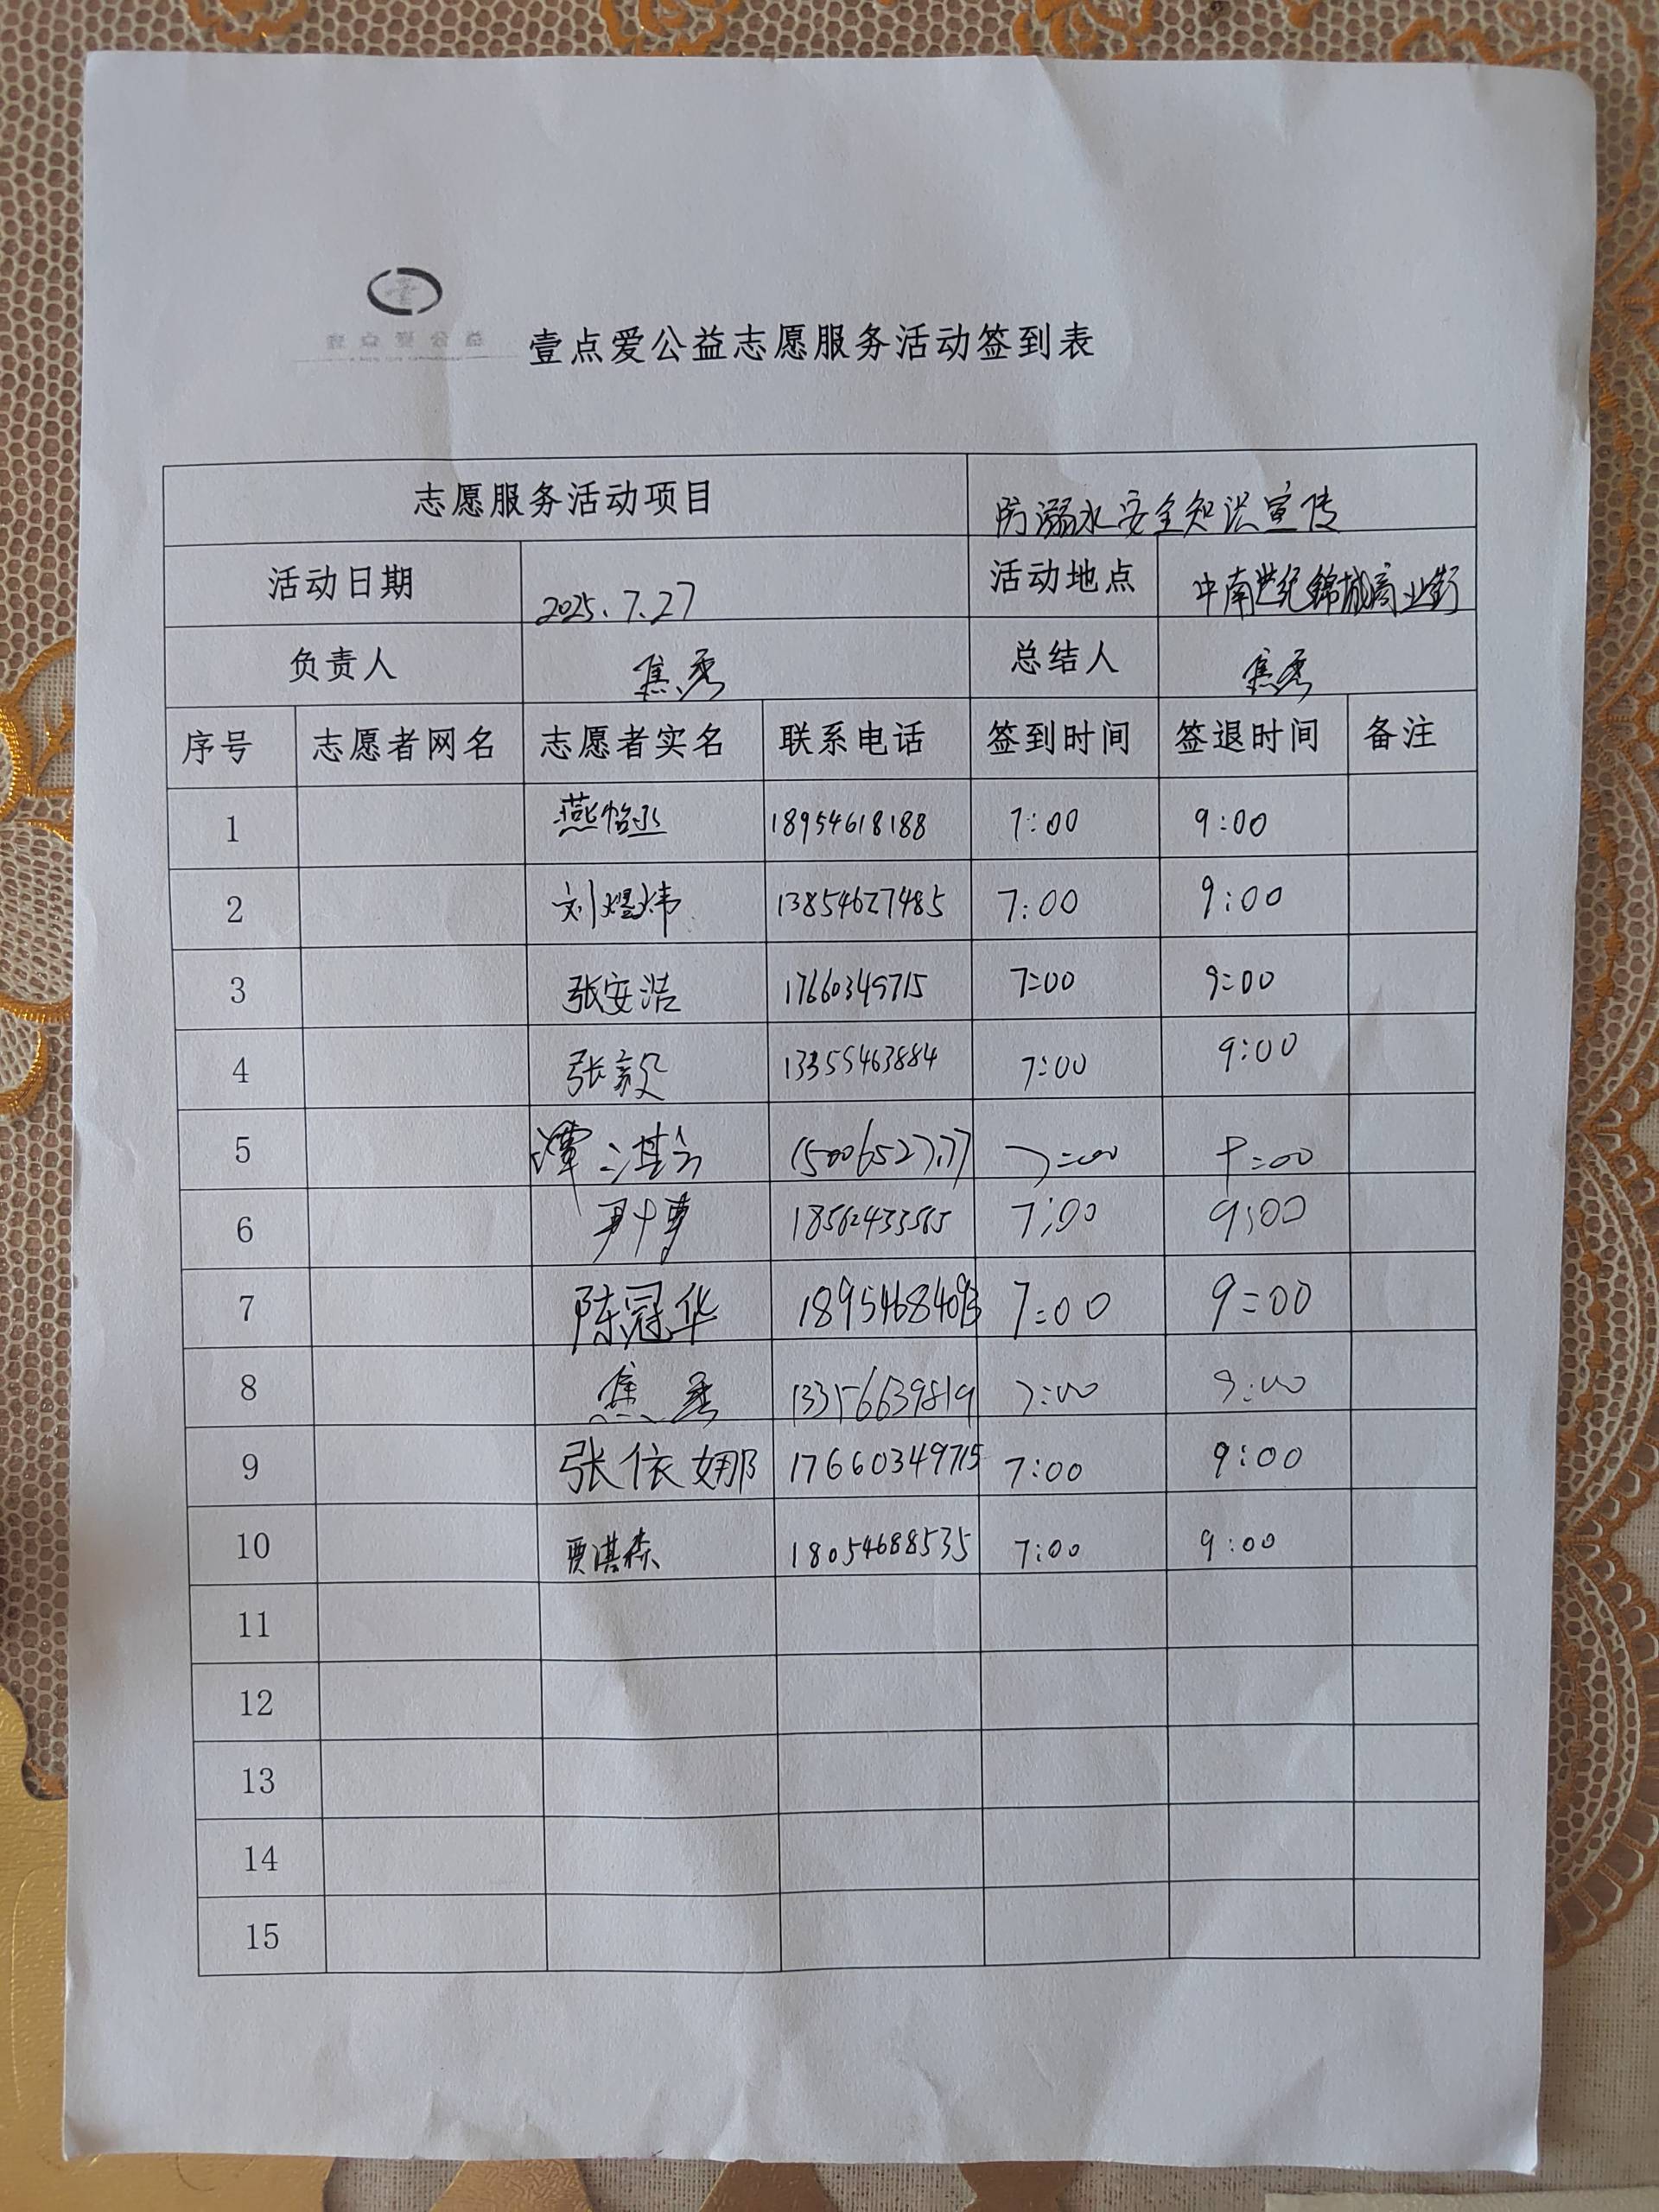 壹点爱公益志愿服务活动签到表
志愿服务活动项目 防溺水安全知识宣传
活动日期 2025.7.27 活动地点 中南世纪锦城商业街
负责人 焦秀 总结人 焦秀
序号 志愿者网名 志愿者实名 联系电话 签到时间 签退时间 备注
1 燕怡丞 18954618188 7:00 9:00
2 刘煜炜 13854627485 7:00 9:00
3 张安浩 17660349715 7:00 9:00
4 张毅 13355463884 7:00 9:00
5 7:00 9:00
6 7:00 9:00
7 陈冠华 7:00 9:00
8 焦秀 7:00 9:00
9 张依娜 17660349715 7:00 9:00
10 贾淇森 18054688535 7:00 9:00
11
12
13
14
15